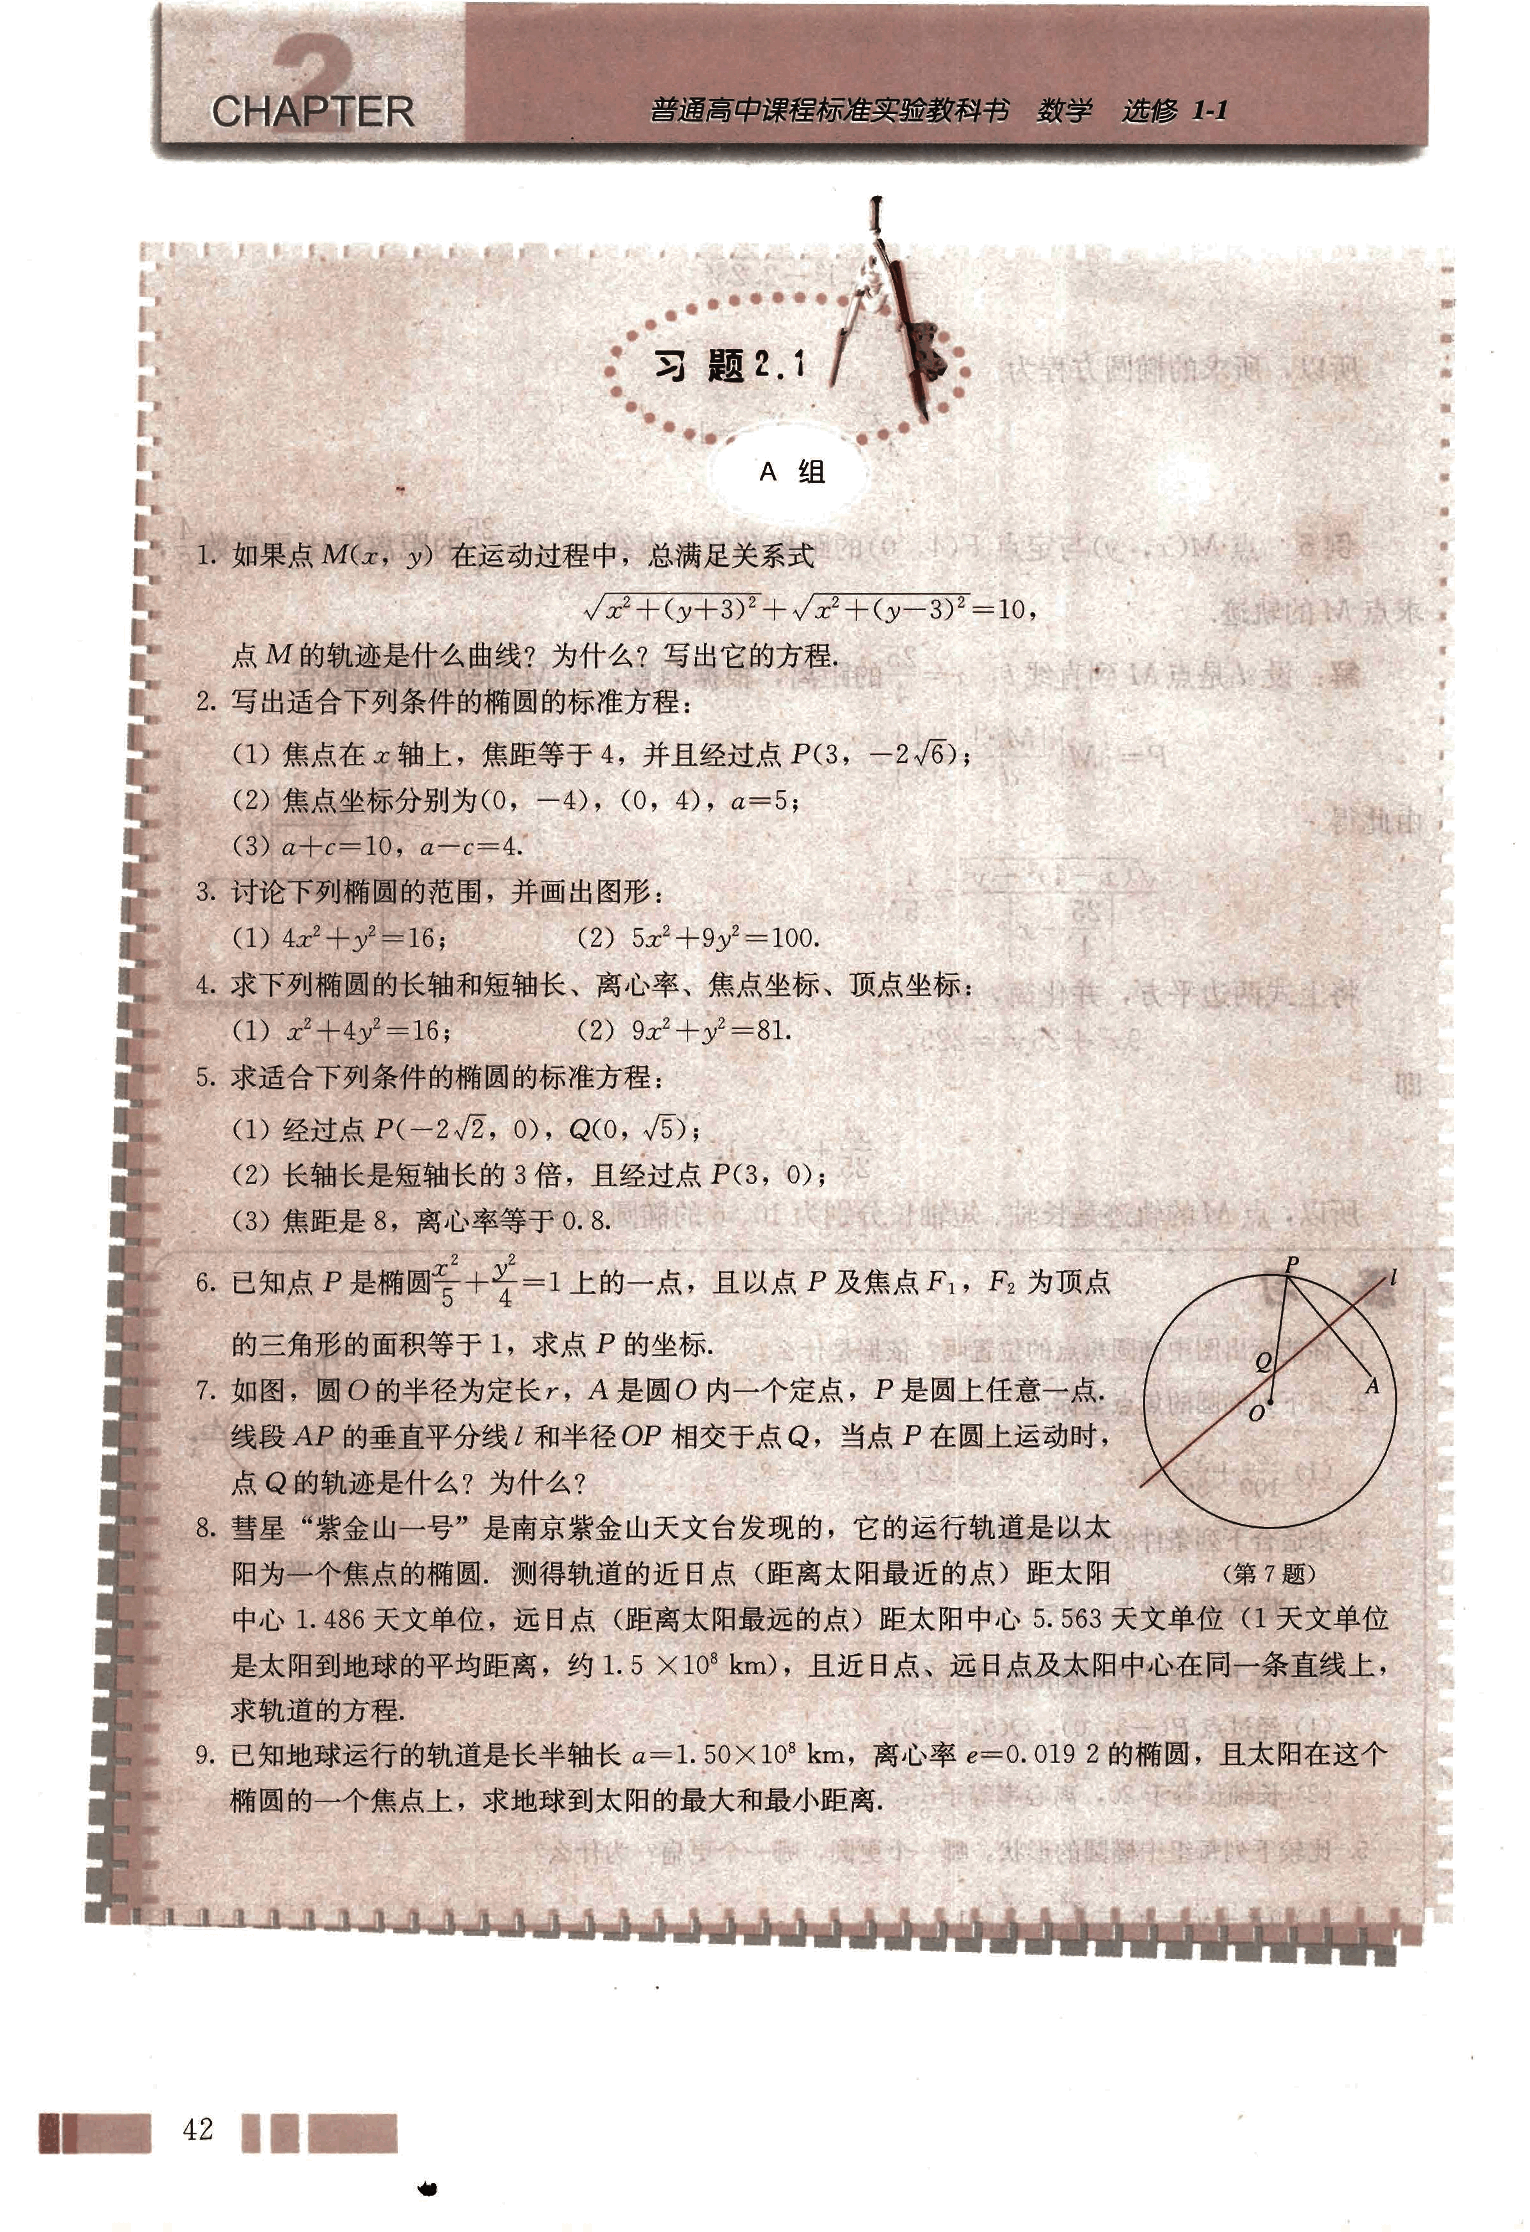 2
CHAPTER
普通高中课程标准实验教科书 数学 选修 1-1
习 题2.1
A 组
1. 如果点 M(x, y) 在运动过程中，总满足关系式
√(x²+(y+3)²)+√(x²+(y-3)²)=10,
点 M 的轨迹是什么曲线？为什么？写出它的方程.
2. 写出适合下列条件的椭圆的标准方程：
(1) 焦点在 x 轴上，焦距等于 4，并且经过点 P(3, -2√6)；
(2) 焦点坐标分别为(0, -4), (0, 4), a=5;
(3) a+c=10, a-c=4.
3. 讨论下列椭圆的范围，并画出图形：
(1) 4x²+y²=16; (2) 5x²+9y²=100.
4. 求下列椭圆的长轴和短轴长、离心率、焦点坐标、顶点坐标：
(1) x²+4y²=16; (2) 9x²+y²=81.
5. 求适合下列条件的椭圆的标准方程：
(1) 经过点 P(-2√2, 0), Q(0, √5)；
(2) 长轴长是短轴长的 3 倍，且经过点 P(3, 0)；
(3) 焦距是 8，离心率等于 0.8.
6. 已知点 P 是椭圆x²/5+y²/4=1 上的一点，且以点 P 及焦点 F₁, F₂ 为顶点
的三角形的面积等于 1，求点 P 的坐标.
7. 如图，圆 O 的半径为定长 r，A 是圆 O 内一个定点，P 是圆上任意一点.
线段 AP 的垂直平分线 l 和半径 OP 相交于点 Q，当点 P 在圆上运动时，
点 Q 的轨迹是什么？为什么？
P
l
Q
A
O
(第 7 题)
8. 彗星“紫金山一号”是南京紫金山天文台发现的，它的运行轨道是以太
阳为一个焦点的椭圆. 测得轨道的近日点（距离太阳最近的点）距太阳
中心 1.486 天文单位，远日点（距离太阳最远的点）距太阳中心 5.563 天文单位（1 天文单位
是太阳到地球的平均距离，约 1.5 ×10⁸ km），且近日点、远日点及太阳中心在同一条直线上，
求轨道的方程.
9. 已知地球运行的轨道是长半轴长 a=1.50×10⁸ km，离心率 e=0.019 2 的椭圆，且太阳在这个
椭圆的一个焦点上，求地球到太阳的最大和最小距离.
42